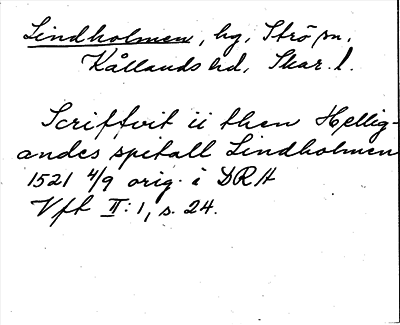 Lindholmen, hg, Strö sn,
Kållands hd, Skar. l.
Scriffvit ii then Hellig-
andes spitall Lindholmen
1521 4/9 orig. i DRA
Vft II:1, s. 24.